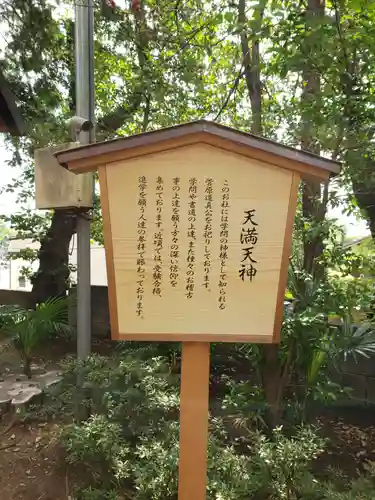 天満天神
このお社には学問の神様として知られる
菅原真公をお祀りしております。
学問や書道、また種々のお稽古
事の上達を願う方々の深い信仰を
集めております。近頃では、受験合格
進学を願う人達の参拝で賑わっております。